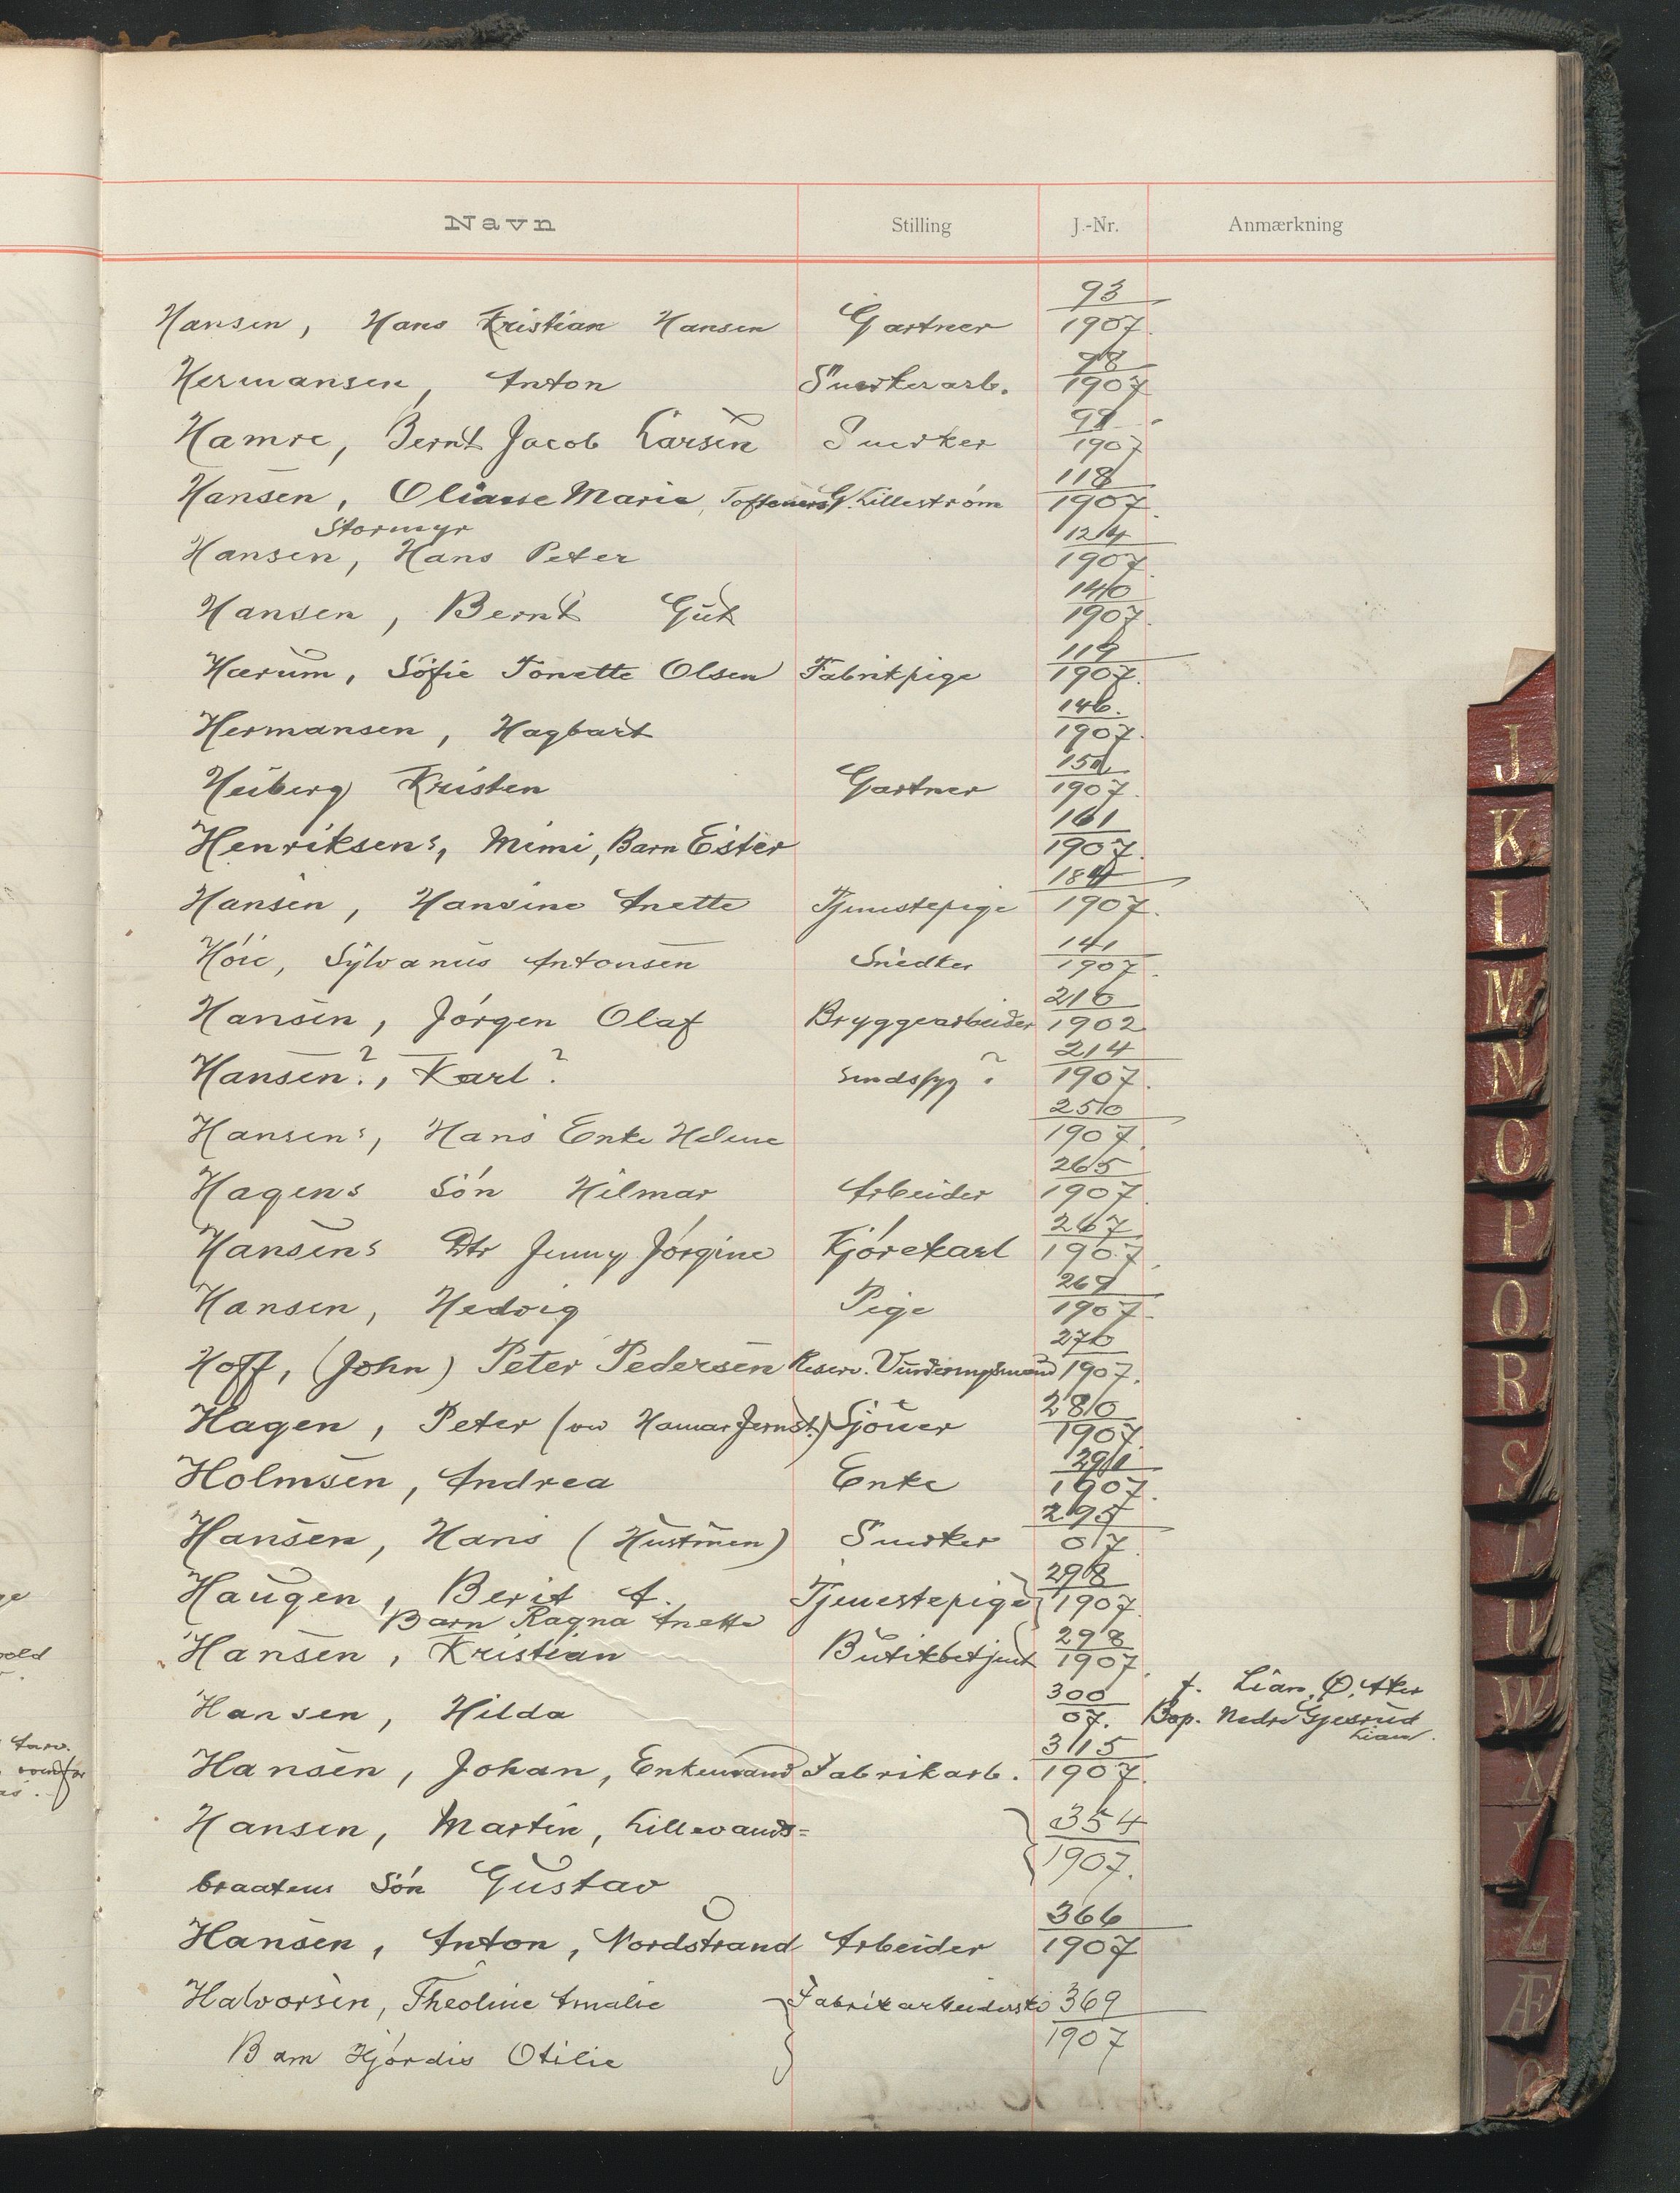 Navn Stilling J.-Nr. Anmærkning
Hansen, Hans Kristian Hansen Gartner 93/1907.
Hermansen, Anton Snedkerarb. 98/1907
Hamre, Bernt Jacob Larsen Snedker 99/1907
Hansen, Oliane Marie, G. Lilleström 118/1907.
Stormyr
Hansen, Hans Peter 124/1907.
Hansen, Bernt Gut 140/1907.
Hærum, Sofie Tonette Olsen Fabrikpige 119/1907.
Hermansen, Hagbart 146./1907.
Heiberg Kristen Gartner 151/1907.
Henriksens, Mimi, Barn Ester 161/1907.
Hansen, Hansine Anette Tjenestepige 184/1907.
Höie, Sylvanus Antonsen Snedker 141/1907.
Hansen, Jörgen Olaf Bryggearbeider 210/1902
Hansen?, Karl? sindssyg? 214/1907.
Hansens, Hans Enke Helene 250/1907.
Hagens Sön Hilmar Arbeider 265/1907.
Hansens Dtr Jenny Jörgine Kjörekarl 267/1907.
Hansen, Hedvig Pige 269/1907.
Hoff, (John) Peter Pedersen Reserv. Vurderingsmand 270/1907.
Hagen, Peter (ow Hamar Jernst.) Sjouer 280/1907.
Holmsen, Andrea Enke 291/1907.
Hansen, Hans (Hustruen) Snedker 295/07.
Haugen, Berit A. Tjenestepige 298/1907.
Barn Ragna Anette
Hansen, Kristian Butikbetjent 298/1907.
f. Lian, Ø. Aker
Hansen, Hilda 300/07. Bop. Nedre Gjesrud
Lian.
Hansen, Johan, Enkemand Fabrikarb. 315/1907.
Hansen, Martin, Lillevands= 354/1907.
braatens Sön Gustav
Hansen, Anton, Nordstrand Arbeider 366/1907
Halvorsen, Theoline Amalie Fabrikarbeiderske 369/1907
Barn Hjördis Otilie
J
K
L
M
N
O
P
Q
R
S
T
U
W
X
Y
Z
Æ